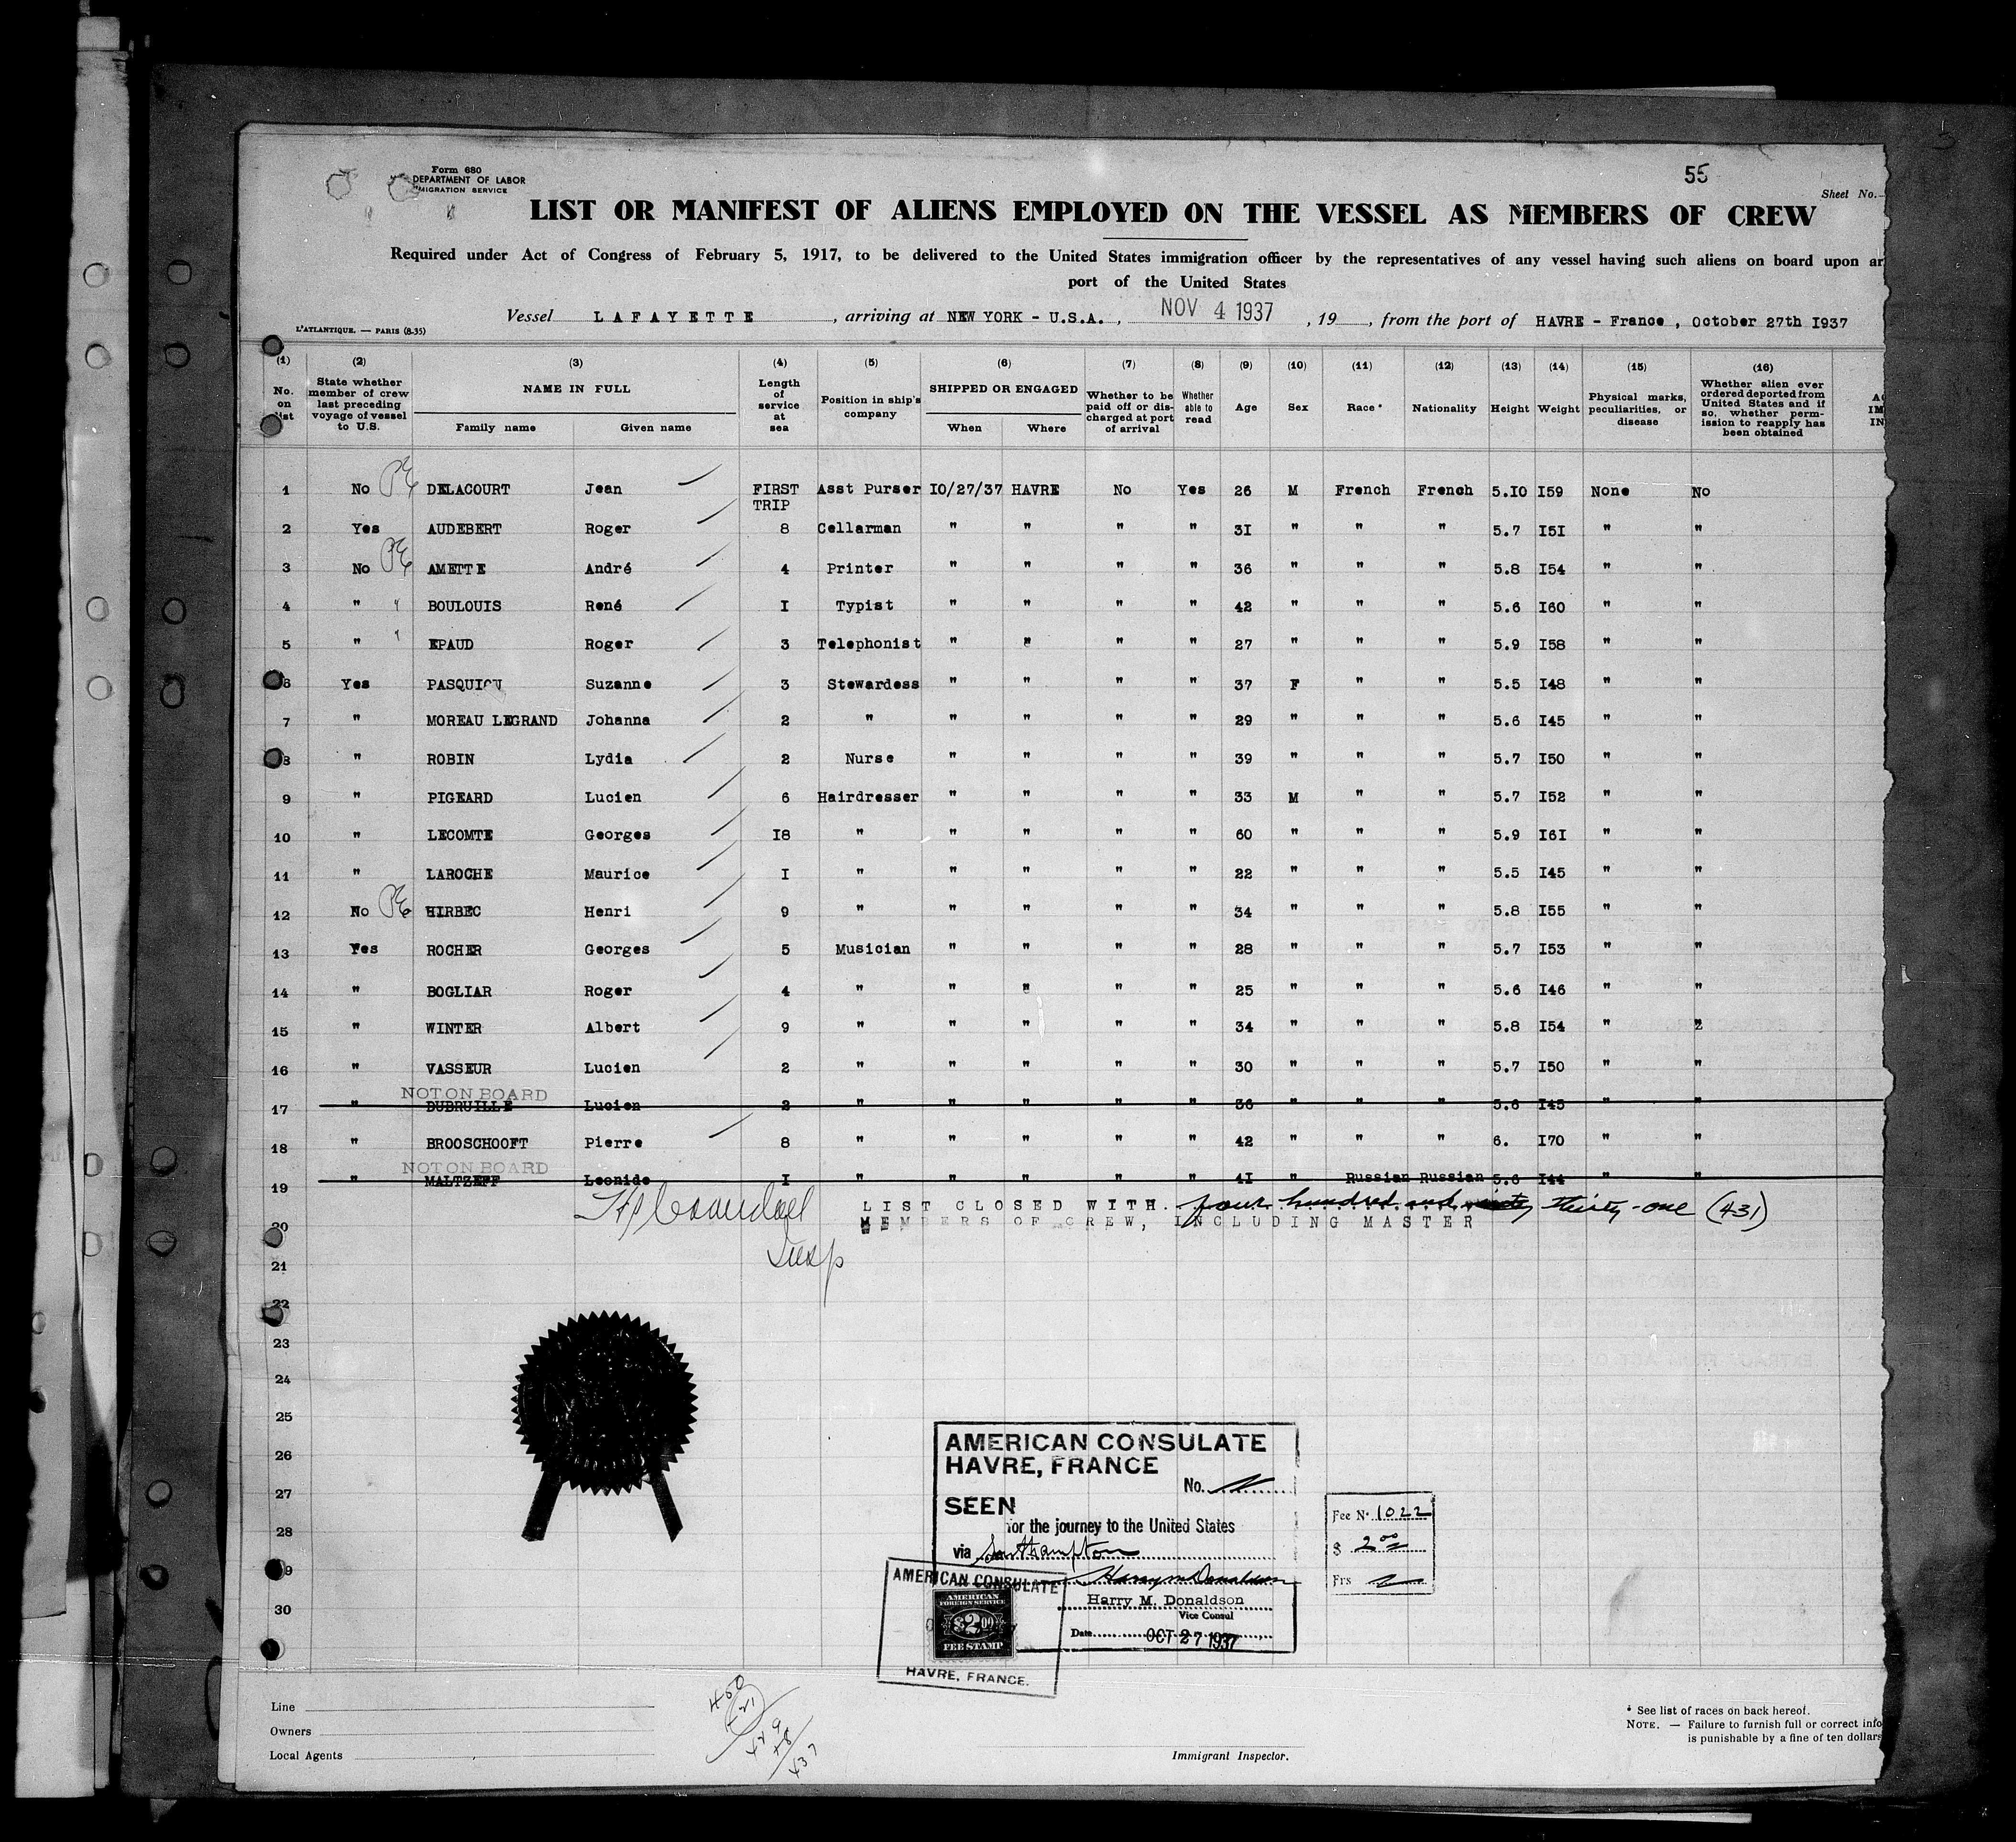 55
Form 680
DEPARTMENT OF LABOR
MIGRATION SERVICE
Sheet No.
LIST OR MANIFEST OF ALIENS EMPLOYED ON THE VESSEL AS MEMBERS OF CREW
Required under Act of Congress of February 5, 1917, to be delivered to the United States immigration officer by the representatives of any vessel having such aliens on board upon ar
port of the United States
L'ATLANTIQUE. — PARIS (8-35)
Vessel LAFAYETTE, arriving at NEW YORK - U.S.A., NOV 4 1937, 19, from the port of HAVRE - France, October 27th 1937
(1) (2) (3) (4) (5) (6) (7) (8) (9) (10) (11) (12) (13) (14) (15) (16)
No. on list
State whether member of crew last preceding voyage of vessel to U.S.
NAME IN FULL
Family name Given name
Length of service at sea
Position in ship's company
SHIPPED OR ENGAGED
When Where
Whether to be paid off or discharged at port of arrival
Whether able to read
Age Sex Race * Nationality Height Weight
Physical marks, peculiarities, or disease
Whether alien ever ordered deported from United States and if so, whether permission to reapply has been obtained
1 No DELACOURT Jean FIRST TRIP Asst Purser 10/27/37 HAVRE No Yes 26 M French French 5.10 159 None No
2 Yes AUDEBERT Roger 8 Cellarman " " " " 31 " " " 5.7 151 " "
3 No AMETTE André 4 Printer " " " " 36 " " " 5.8 154 " "
4 " BOULOUIS René 1 Typist " " " " 42 " " " 5.6 160 " "
5 " EPAUD Roger 3 Telephonist " " " " 27 " " " 5.9 158 " "
6 Yes PASQUIOU Suzanne 3 Stewardess " " " " 37 F " " 5.5 148 " "
7 " MOREAU LEGRAND Johanna 2 " " " " " 29 " " " 5.6 145 " "
8 " ROBIN Lydia 2 Nurse " " " " 39 " " " 5.7 150 " "
9 " PIGEARD Lucien 6 Hairdresser " " " " 33 M " " 5.7 152 " "
10 " LECOMTE Georges 18 " " " " " 60 " " " 5.9 161 " "
11 " LAROCHE Maurice 1 " " " " " 22 " " " 5.5 145 " "
12 No HIRBEC Henri 9 " " " " " 34 " " " 5.8 155 " "
13 Yes ROCHER Georges 5 Musician " " " " 28 " " " 5.7 153 " "
14 " BOGLIAR Roger 4 " " " " " 25 " " " 5.6 146 " "
15 " WINTER Albert 9 " " " " " 34 " " " 5.8 154 " "
16 " VASSEUR Lucien 2 " " " " " 30 " " " 5.7 150 " "
NOT ON BOARD
17 " DUBRUILLE Lucien 2 " " " " " 36 " " " 5.6 145 " "
18 " BROOSCHOOFT Pierre 8 " " " " " 42 " " " 6. 170 " "
NOT ON BOARD
19 " MALTZEFF Leonide 1 " " " " " 41 " Russian Russian 5.6 144 " "
LIST CLOSED WITH four hundred and thirty-one (431)
MEMBERS OF CREW, INCLUDING MASTER
Insp
20
21
22
23
24
25
26
27
28
29
30
AMERICAN CONSULATE
HAVRE, FRANCE
No.
SEEN
for the journey to the United States
via Southampton
Harry M Donaldson
Harry M. Donaldson
Vice Consul
Date OCT 27 1937
Fee No 1022
$ 2.00
Frs
AMERICAN CONSULATE
AMERICAN
FOREIGN SERVICE
$2.00
FEE STAMP
HAVRE, FRANCE.
Line
Owners
Local Agents
429
437
Immigrant Inspector.
* See list of races on back hereof.
NOTE. — Failure to furnish full or correct info
is punishable by a fine of ten dollars